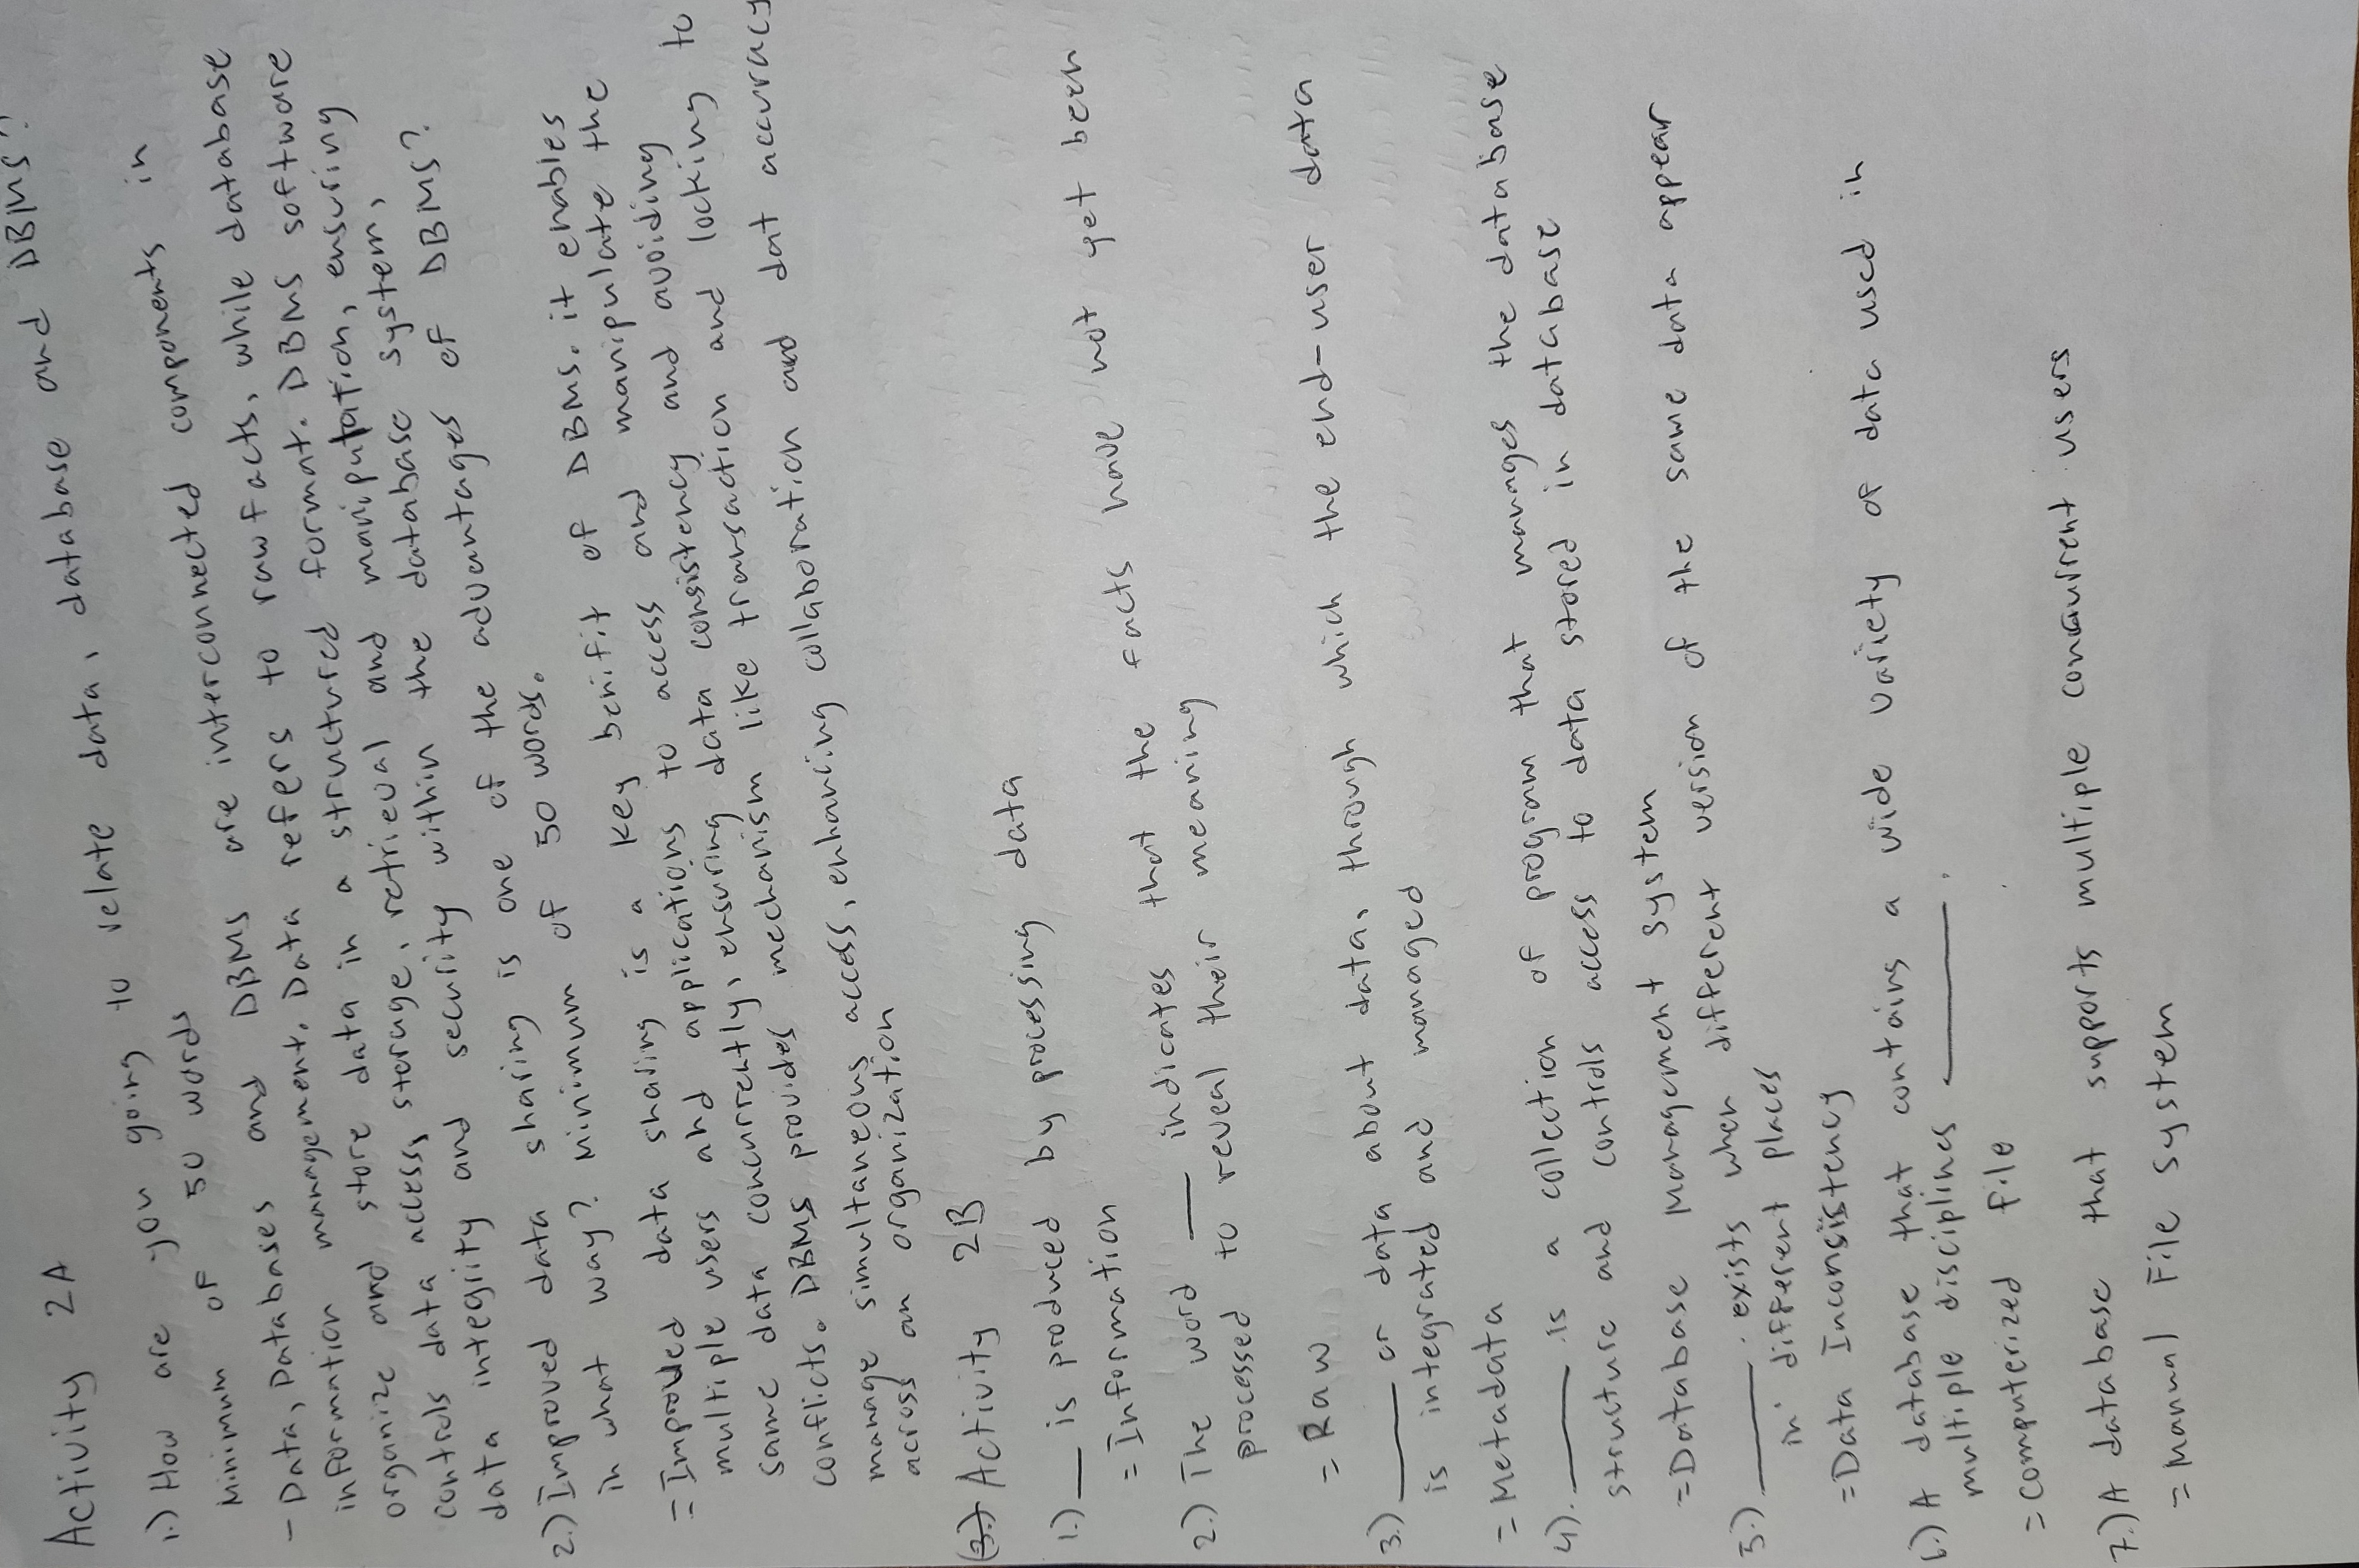 Activity 2A
1.) How are you going to relate data, database and DBMS?
Minimum of 50 words
- Data, Databases and DBMS are interconnected components in
information management. Data refers to raw facts, while database
organize and store data in a structured format. DBMS software
controls data access storage, retrieval and manipulation, ensuring
data integrity and security within the database system,
2.) Improved data sharing is one of the advantages of DBMS?
in what way? Minimum of 50 words.
= Improved data sharing is a key benifit of DBMS. it enables
multiple users and applications to access and manipulate the
same data concurrently, ensuring data consistency and avoiding
conflicts. DBMS provides mechanism like transaction and locking to
manage simultaneous access, enhancing collaboration and dat accuracy
across an organization
(3.) Activity 2B
1.) ___ is produced by processing data
= Information
2.) The word ___ indicates that the facts have not yet been
processed to reveal their meaning
= Raw
3.) ___ or data about data, through which the end-user data
is integrated and managed
= Metadata
4.) ___ is a collection of program that manages the database
structure and controls access to data stored in database
= Database Management System
5.) ___ exists when different version of the same data appear
in different places
= Data Inconsistency
6.) A database that contains a wide variety of data used in
multiple disciplines ___.
= Computerized File
7.) A database that supports multiple concurrent users
= Manual File System